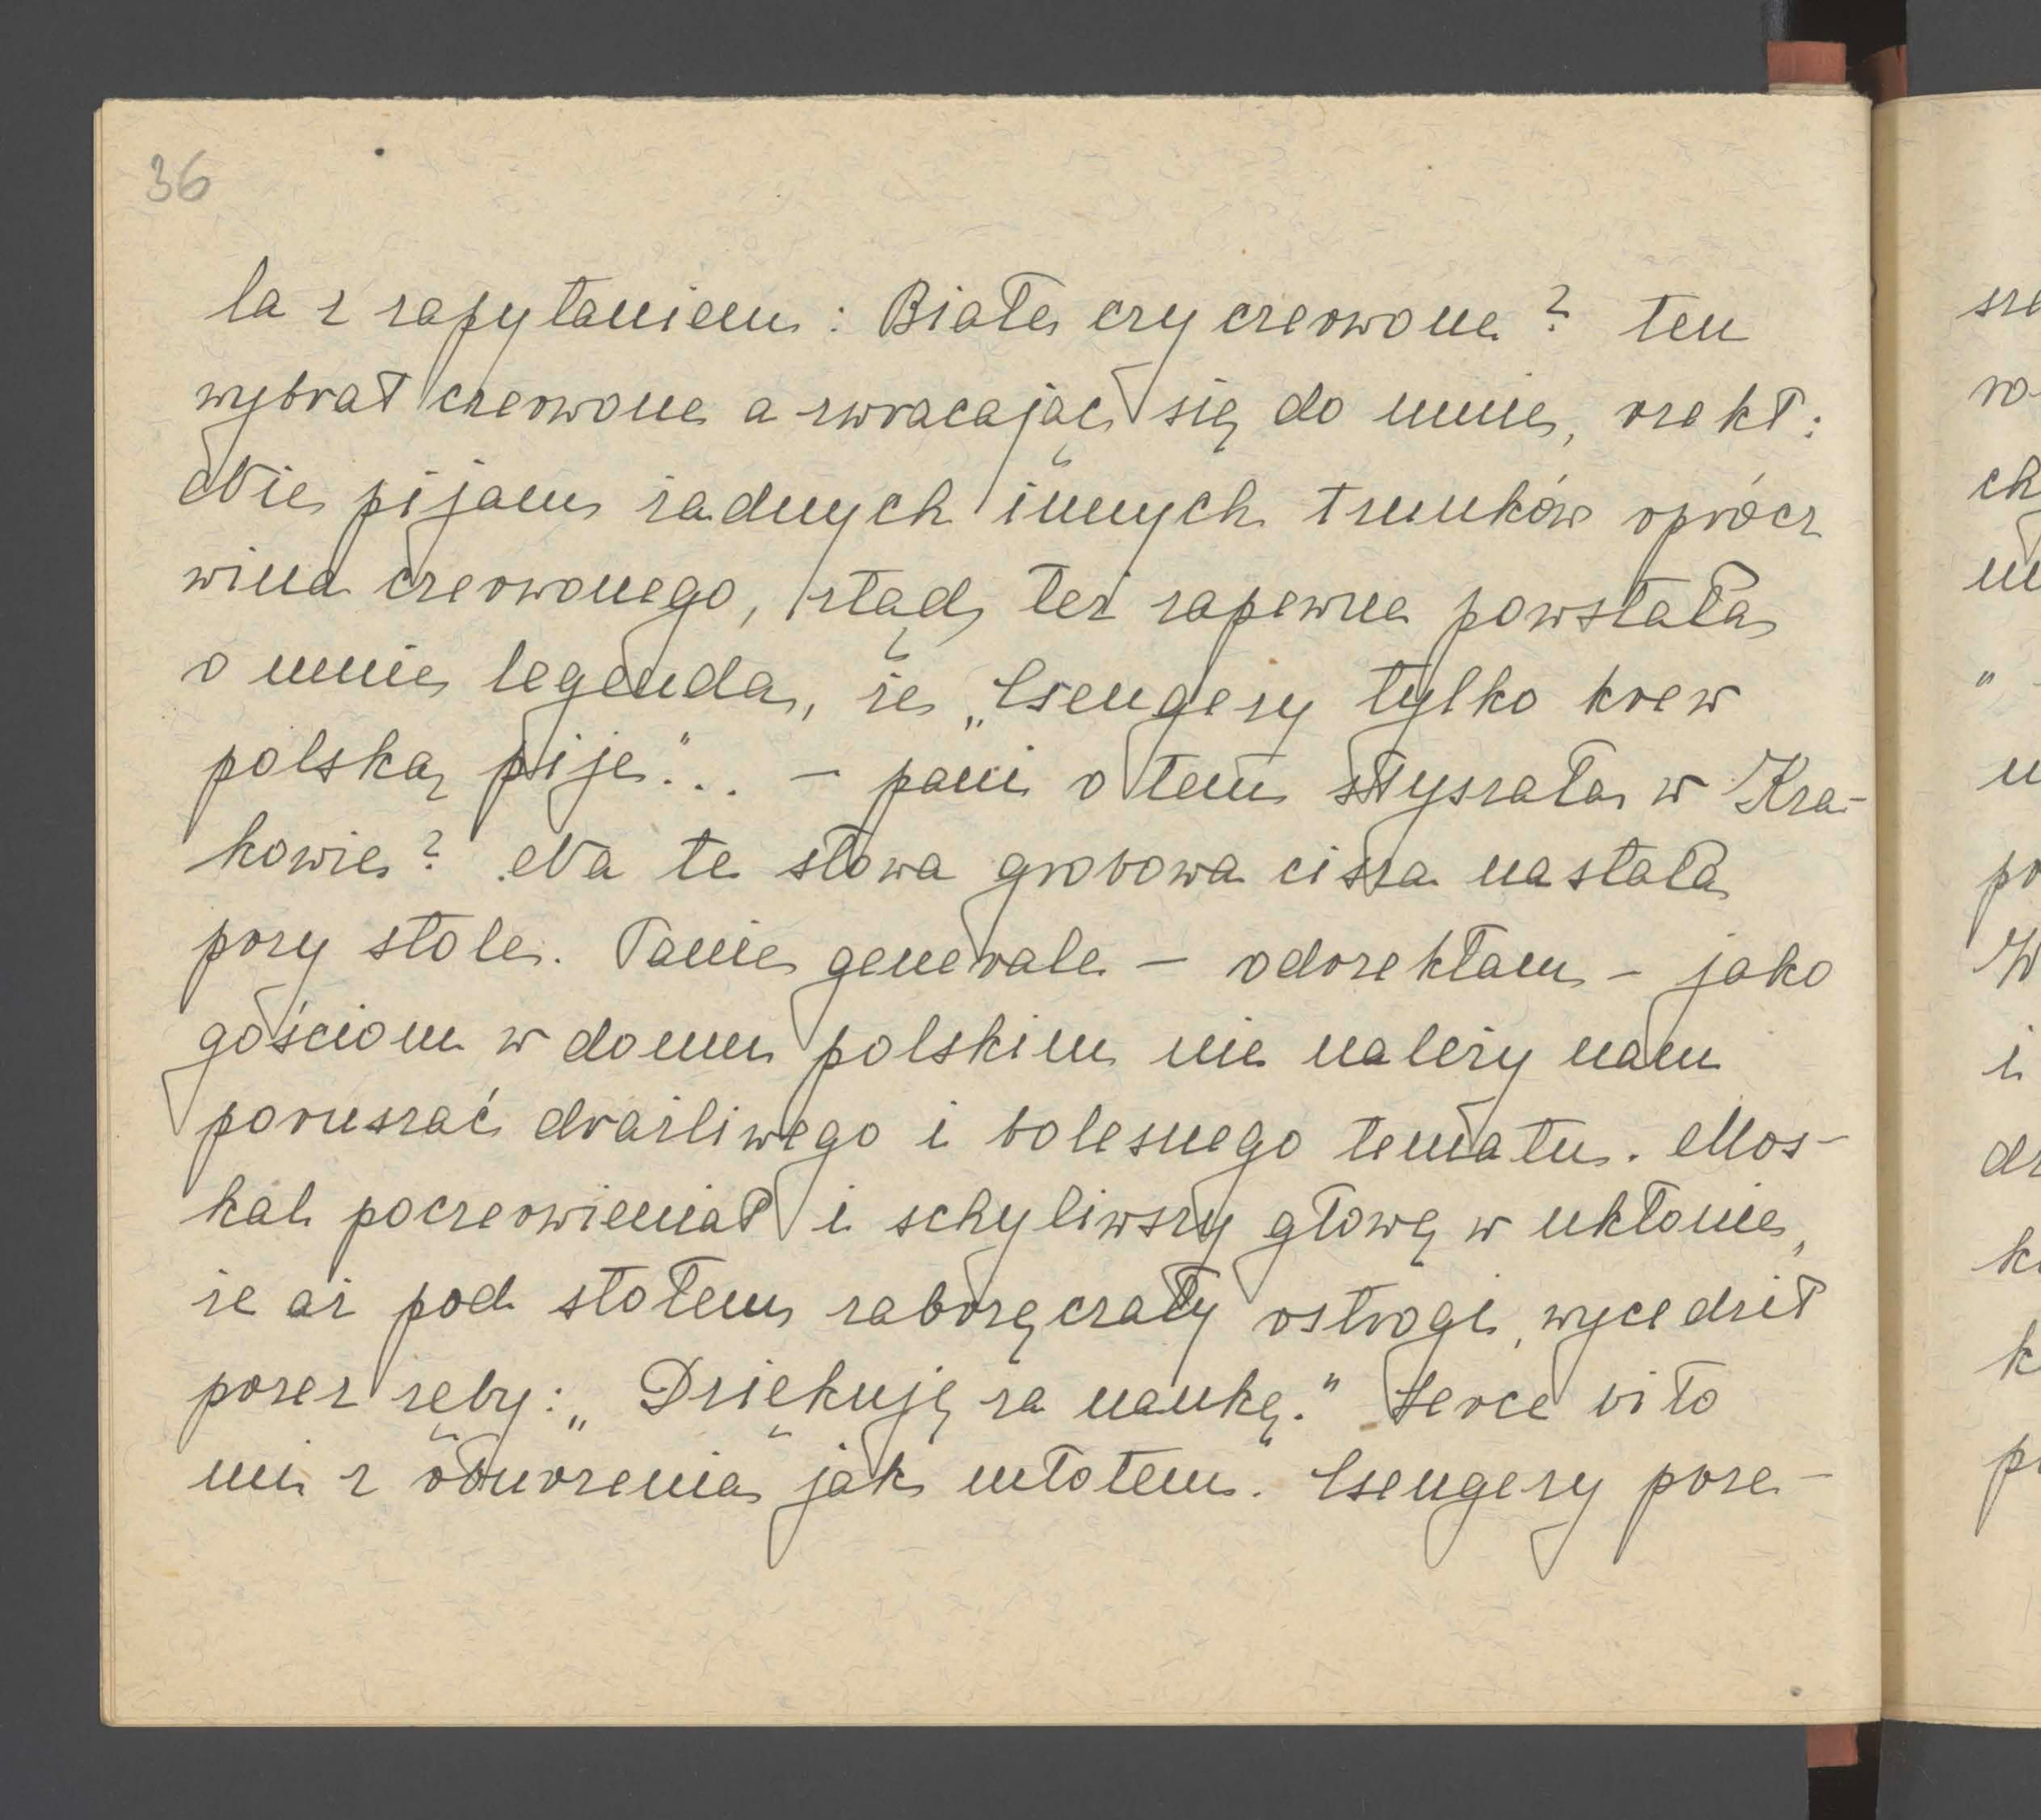 36
la z zapytaniem: Białe czy czerwone? ten
wybrał czerwone a zwracając się do mnie, rzekł:
Nie pijam żadnych innych trunków oprócz
wina czerwonego, stąd też zapewne powstała
o mnie legenda, że „Csengery tylko krew
polską pije"... – pani o tem słyszała w Kra-
kowie? Na te słowa grobowa cisza nastała
przy stole. Panie generale – odrzekłam – jako
gościom w domu polskim nie należy nam
poruszać drażliwego i bolesnego tematu. Mos-
kal poczerwieniał i schyliwszy głowę w ukłonie,
że aż pod stołem zabrzęczały ostrogi, wycedził
przez zęby: „Dziękuję za naukę." Serce biło
mi z oburzenia jak młotem. Csengery prze-
sze
ch
"
po
W
i
dr
k